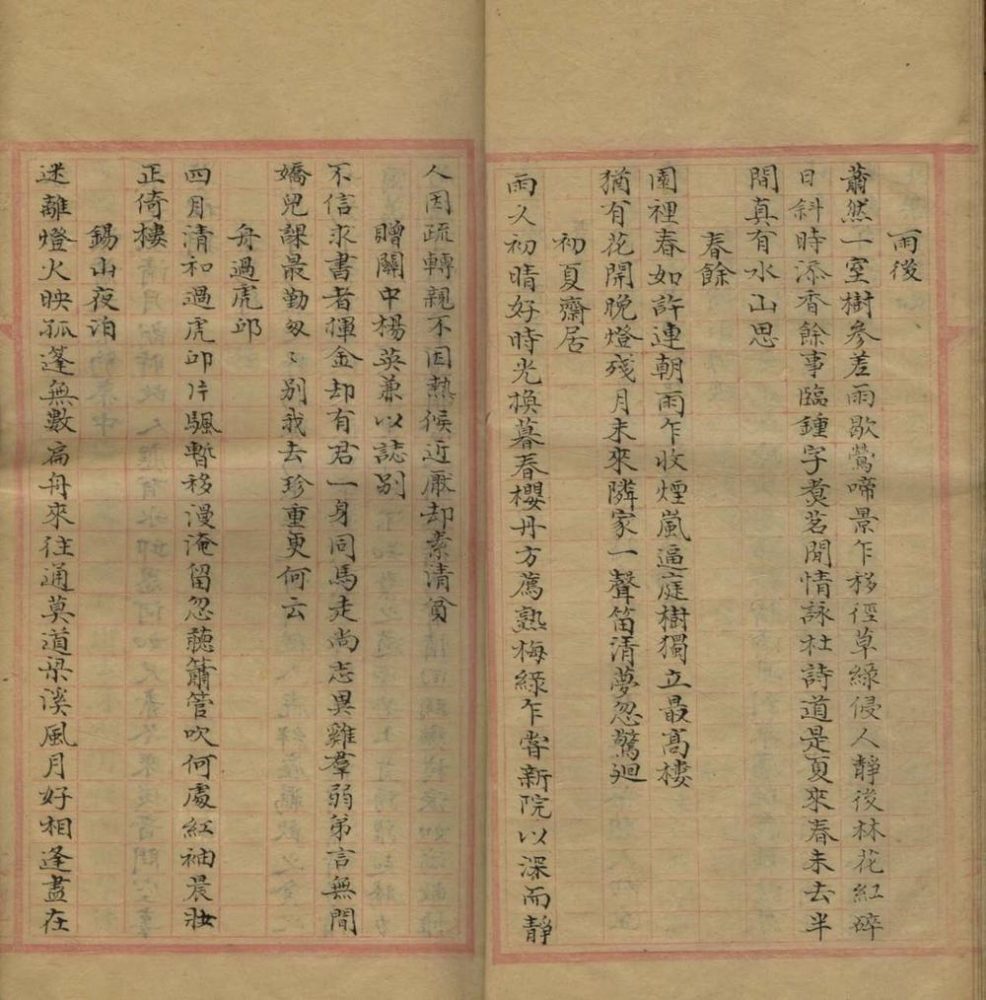 雨後
蕭然一室樹參差雨歇鶯啼景乍移徑草綠侵人靜後林花紅碎
日斜時添香餘事臨鍾字煑茗閒情詠杜詩道是夏來春未去半
間真有水山思
春餘
園裡春如許連朝雨乍收煙嵐逼庭樹獨立最高樓
猶有花開晚燈殘月未來隣家一聲笛清夢忽驚廻
初夏齋居
雨久初晴好時光換暮春櫻丹方薦熟梅綠乍嘗新院以深而靜
人因疏轉親不因熱候近厭却素清貧
贈關中楊英兼以誌別
不信求書者揮金却有君一身同馬走尚志異雞羣弱弟言無間
嬌兒課最勤匆〻別我去珍重更何云
舟過虎邱
四月清和過虎邱片颿暫移漫淹留忽聽簫管吹何處紅袖晨妝
正倚樓
錫山夜泊
迷離燈火映孤蓬無數扁舟來往通莫道梁溪風月好相逢盡在